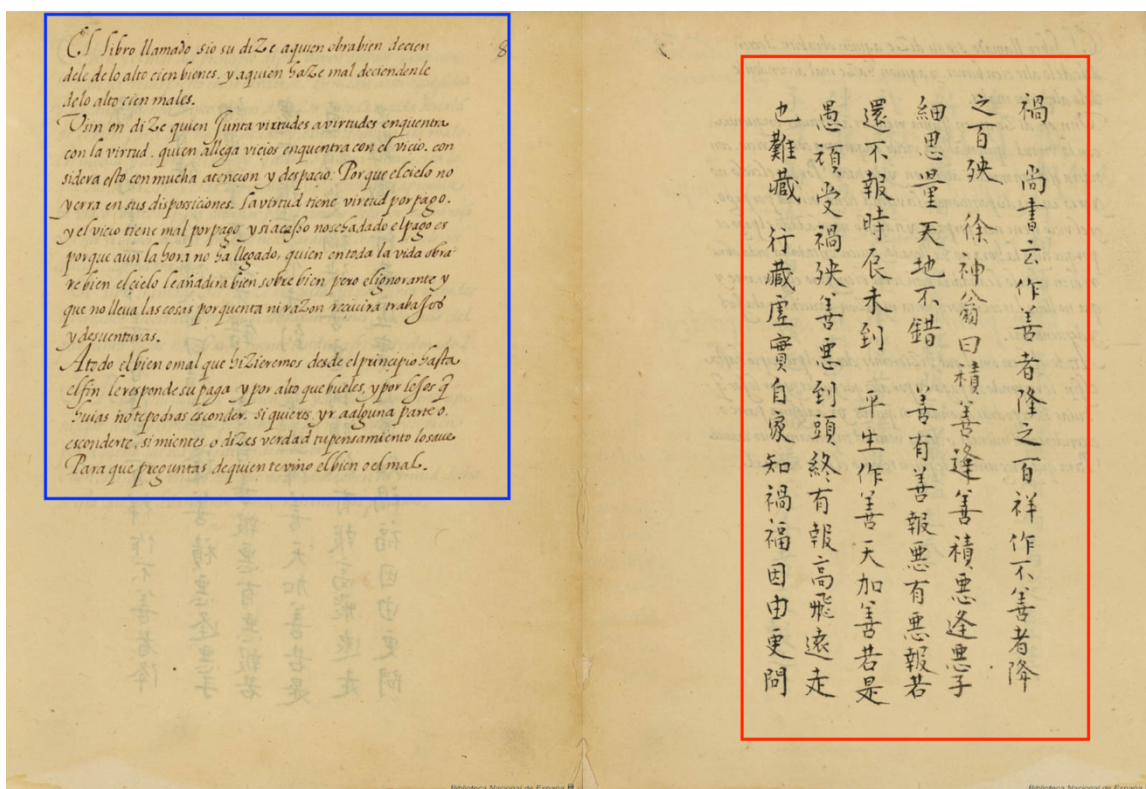 El libro llamado sio su diZe aquien obrabien decien
dele de lo alto cien bienes. y aquien haZe mal deciendenle
delo alto cien males.
Vsin en diZe quien Junta virtudes avirtudes enquentra
con la virtud. quien allega vicios enquentra con el vicio. con
sidera esto con mucha atencion y despacio. Por que el cielo no
yerra en sus disposiciones. la virtud tiene virtud por pago.
y el vicio tiene mal por pago y si acasso nosehadado el pago es
porque aun la hora no ha llegado, quien en toda la vida obra
re bien el cielo le añadira bien sobre bien pero el ignorante y
que no lleua las cosas por quenta ni razon recivira trabaJos
y desuenturas.
Atodo el bien omal que hiZieremos desde el principio hasta
el fin le responde su paga y por alto que bueles. y por leJos q̃
huias no te podras esconder. Si quieres yr a alguna parte o.
esconderte, si mientes. o diZes verdad tu pensamiento lo saue
Para que preguntas de quien te vino el bien o el mal.
8
禍 尚書云作善者降之百祥作不善者降
之百殃 徐神翁曰積善逢善積惡逢惡子
細思量天地不錯 善有善報惡有惡報若
還不報時辰未到 平生作善天加善若是
愚頑受禍殃善惡到頭終有報高飛遠走
也難藏 行藏虛實自家知禍福因由更問
Biblioteca Nacional de España
Biblioteca Nacional de España